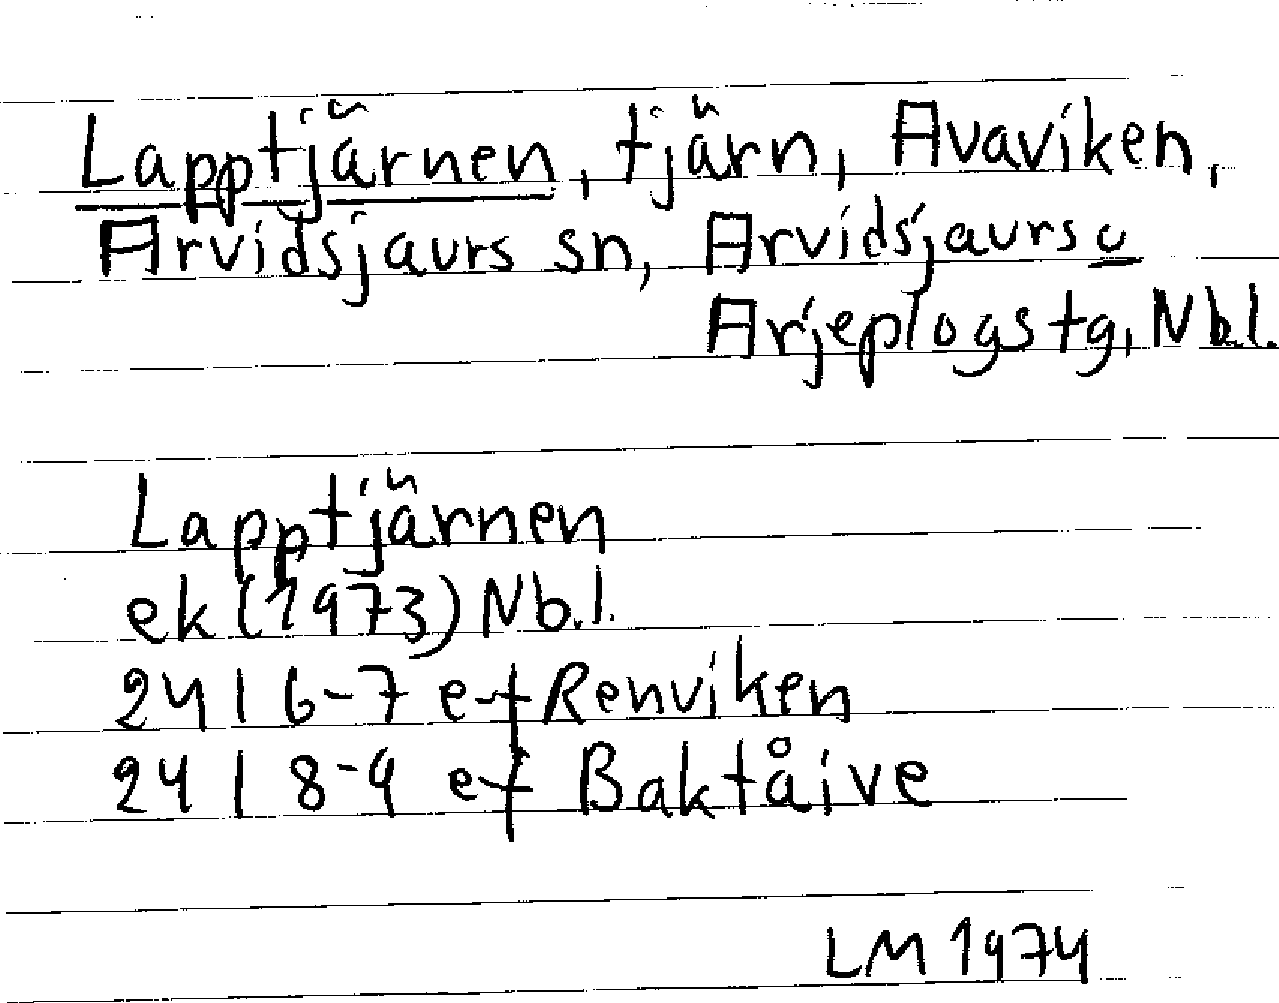 Lapptjärnen, tjärn, Avaviken,
Arvidsjaurs sn, Arvidsjaurs o
Arjeplogs tg, Nb.l.
Lapptjärnen
ek (1973) Nb.l.
24 I 6-7 ef Renviken
24 I 8-9 ef Baktåive
LM 1974